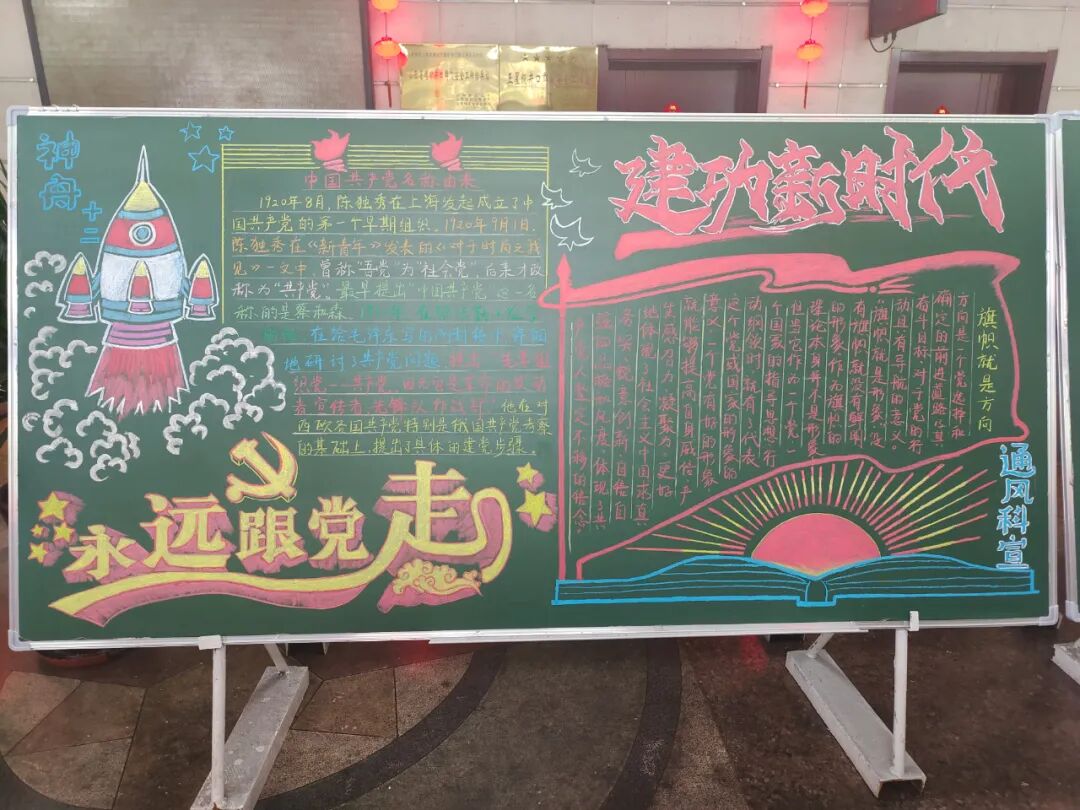 神舟十二
中国共产党名称由来
1920年8月,陈独秀在上海发起成立了中
国共产党的第一个早期组织。1920年9月1日,
陈独秀在《新青年》发表的《对于时局之我
见》一文中,曾称“吾党”为“社会党”,后来才改
称为“共产党”。最早提出“中国共产党”这一名
称的是蔡和森。
在给毛泽东写的
地研讨了共产党问题,提出“先要组
织党——共产党,因为它是革命的发动
者宣传者、先锋队作战部”,他在对
西欧各国共产党特别是俄国共产党考察
的基础上,提出了具体的建党步骤。
永远跟党走
建功新时代
旗帜就是方向
方向是一个党选择和
确定的前进道路,具
有斗目标对于党的行
动具有导航的意义。
旗帜就是形象。没
有旗帜就没有鲜明
的形象。作为旗帜的
理论本身并不具形象
但当它作为一个党、一
个国家的指导思想、行
动纲领时,就有了代表
这个党或国家的形象的
意义。一个党有好的形象
就能够提高自身威信,产
生感召力、凝聚力,更好
地体现了社会主义中国求真
务实、锐意创新、自信自
强的
产党人坚定不移的信念
通风科宣